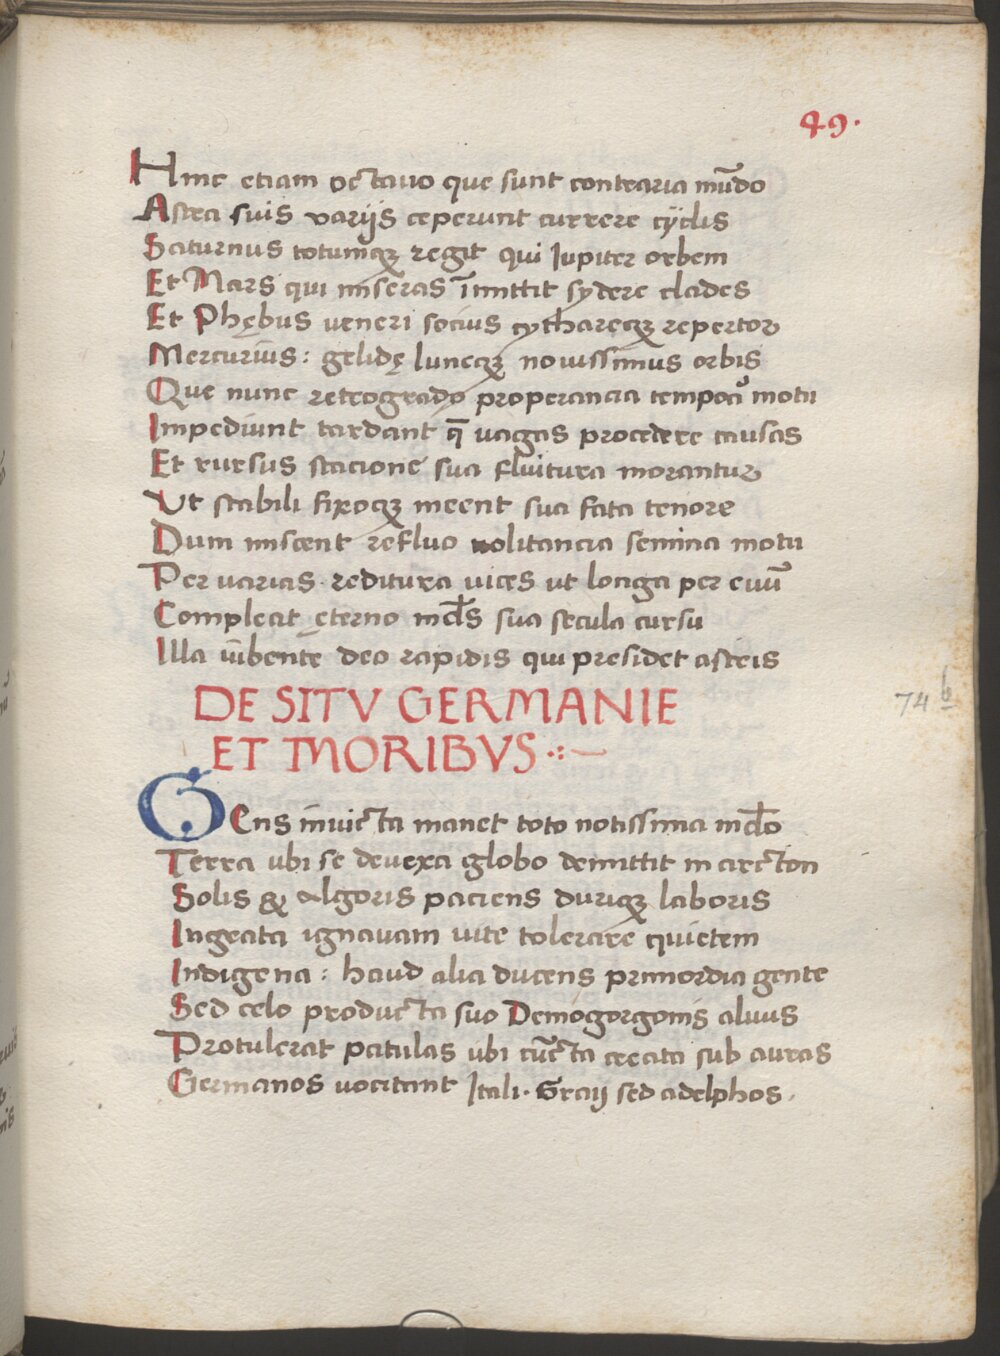 49.
Hinc etiam octauo que sunt contraria mūdo
Astra suis varijs ceperunt currere cyclis
Saturnus totumqꝫ regit qui Iupiter orbem
Et Mars qui miseras īmittit sydere clades
Et Phębus veneri socius cytharęqꝫ repertor
Mercurius: gelidę lunęqꝫ nouissimus orbis
Que nunc retrogrado properancia motu
Impediunt tardant q̄ vagas procedere causas
Et rursus stacione sua fluitura morantur
Vt stabili fixoqꝫ meent sua fata tenore
Dum miscent refluo uolitancia semina motu
Per varias reditura vices ut longa per euū
Compleat ęterno mūds sua secula cursu
Illa iūbente deo rapidis qui presidet astris
DE SITV GERMANIE
ET MORIBVS
74 b
GEns inuicta manet toto notissima mūdo
Terra vbi se deuexa globo demittit in arcton
Solis & Algoris paciens duriqꝫ laboris
Ingrata ignauam vite tolerare quietem
Indigena: haud alia ducens primordia gente
Sed celo producta suo Demogorgonis aluus
Protulerat patulas vbi cūcta creata sub auras
Germanos vocitant Itali. Graij sed adelphos.